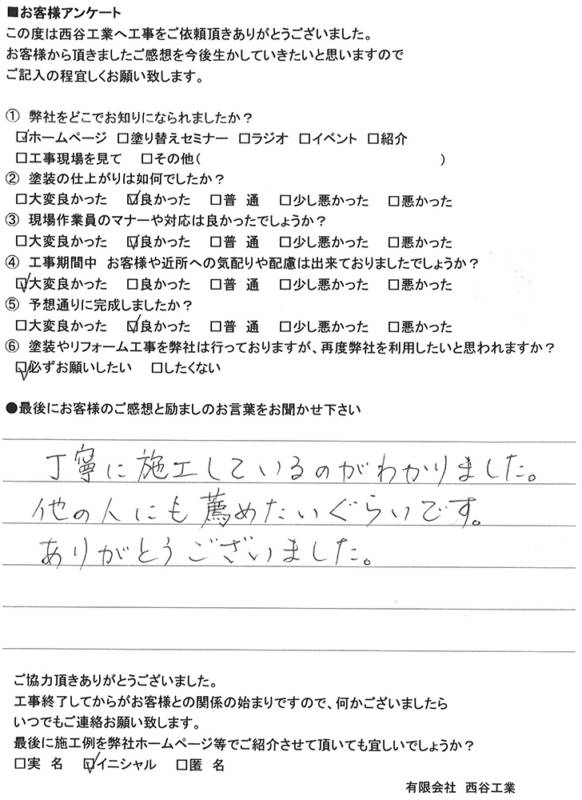 ■お客様アンケート
この度は西谷工業へ工事をご依頼頂きありがとうございました。
お客様から頂きましたご感想を今後生かしていきたいと思いますので
ご記入の程宜しくお願い致します。
① 弊社をどこでお知りになられましたか？
☑ホームページ □塗り替えセミナー □ラジオ □イベント □紹介
□工事現場を見て □その他(　　　)
② 塗装の仕上がりは如何でしたか？
□大変良かった ☑良かった □普 通 □少し悪かった □悪かった
③ 現場作業員のマナーや対応は良かったでしょうか？
□大変良かった ☑良かった □普 通 □少し悪かった □悪かった
④ 工事期間中 お客様や近所への気配りや配慮は出来ておりましたでしょうか？
☑大変良かった □良かった □普 通 □少し悪かった □悪かった
⑤ 予想通りに完成しましたか？
□大変良かった ☑良かった □普 通 □少し悪かった □悪かった
⑥ 塗装やリフォーム工事を弊社は行っておりますが、再度弊社を利用したいと思われますか？
☑必ずお願いしたい □したくない
●最後にお客様のご感想と励ましのお言葉をお聞かせ下さい
丁寧に施工しているのがわかりました。
他の人にも薦めたいぐらいです。
ありがとうございました。
ご協力頂きありがとうございました。
工事終了してからがお客様との関係の始まりですので、何かございましたら
いつでもご連絡お願い致します。
最後に施工例を弊社ホームページ等でご紹介させて頂いても宜しいでしょうか？
□実 名 ☑イニシャル □匿 名
有限会社 西谷工業